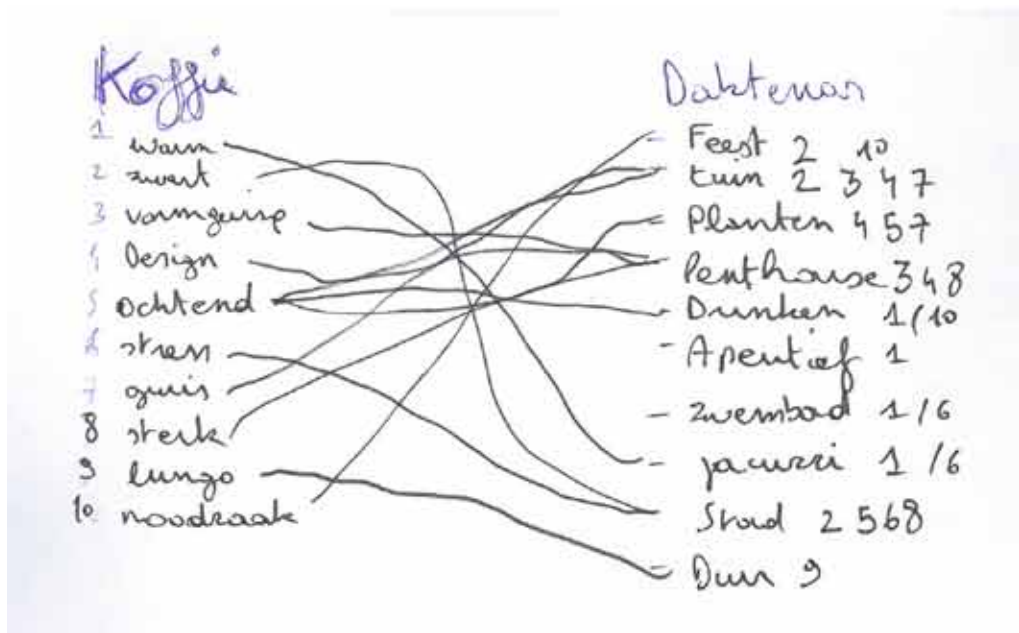 Koffie
1 warm
2 zwart
3 vormgeving
4 Design
5 Ochtend
6 stress
7 grijs
8 sterk
9 lungo
10 noodzaak
Dakterras
- Feest 2 10
- tuin 2 3 4 7
- Planten 4 5 7
- Penthouse 3 4 8
- Drinken 1/10
- Aperitief 1
- zwembad 1/6
- jacuzzi 1/6
- Stad 2 5 6 8
- Duur 9